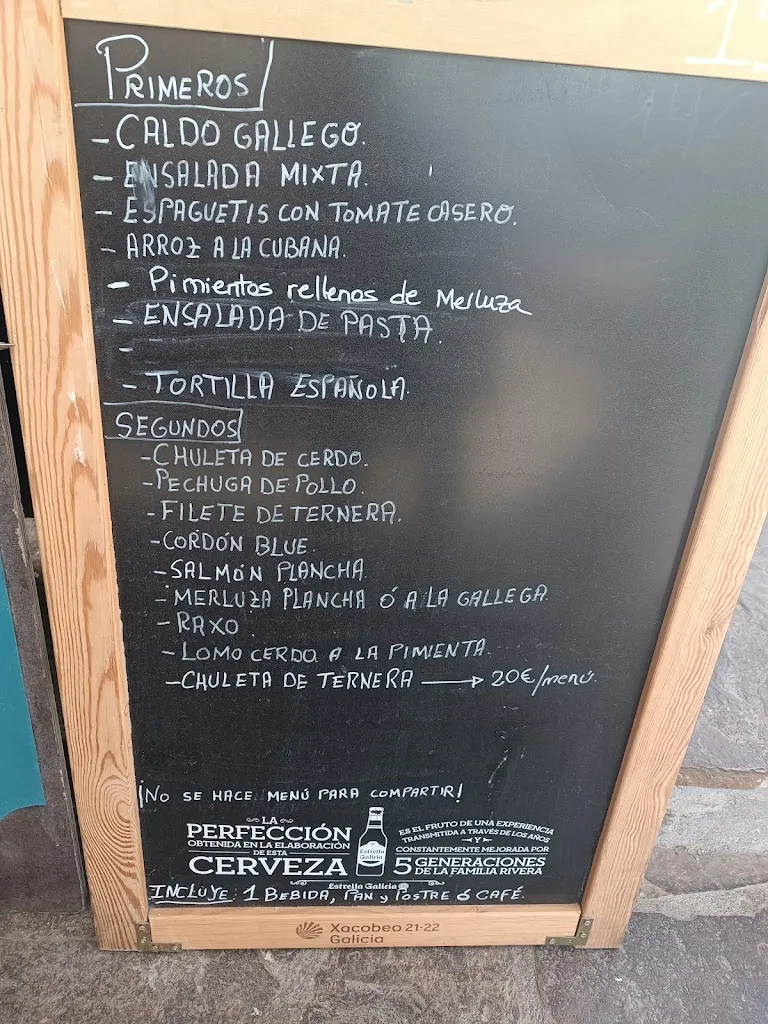 PRIMEROS
- CALDO GALLEGO.
- ENSALADA MIXTA.
- ESPAGUETIS CON TOMATE CASERO.
- ARROZ A LA CUBANA.
- Pimientos rellenos de Merluza
- ENSALADA DE PASTA.
-
- TORTILLA ESPAÑOLA.
SEGUNDOS
- CHULETA DE CERDO.
- PECHUGA DE POLLO.
- FILETE DE TERNERA.
- CORDÓN BLUE.
- SALMÓN PLANCHA.
- MERLUZA PLANCHA Ó A LA GALLEGA.
- RAXO
- LOMO CERDO A LA PIMIENTA.
- CHULETA DE TERNERA → 20€/menú.
¡NO SE HACE MENÚ PARA COMPARTIR!
LA
PERFECCIÓN
OBTENIDA EN LA ELABORACIÓN
DE ESTA
CERVEZA
Estrella Galicia
ES EL FRUTO DE UNA EXPERIENCIA
TRANSMITIDA A TRAVÉS DE LOS AÑOS
Y
CONSTANTEMENTE MEJORADA POR
5 GENERACIONES
DE LA FAMILIA RIVERA
Estrella Galicia
INCLUYE: 1 BEBIDA, PAN y POSTRE Ó CAFÉ.
Xacobeo 21·22
Galicia